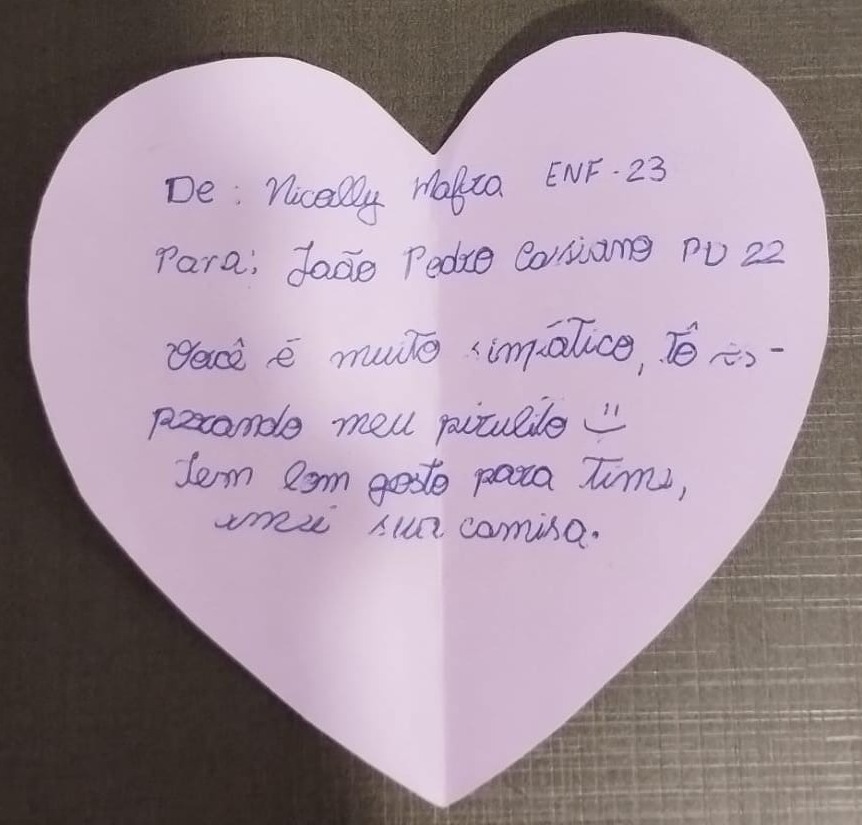 De: Nicolly Mafra ENF-23
Para: João Pedro Cassiano PD 22
Você é muito simpático, Tô es-
perando meu pirulito :)
Tem bom gosto para time,
amei sua camisa.